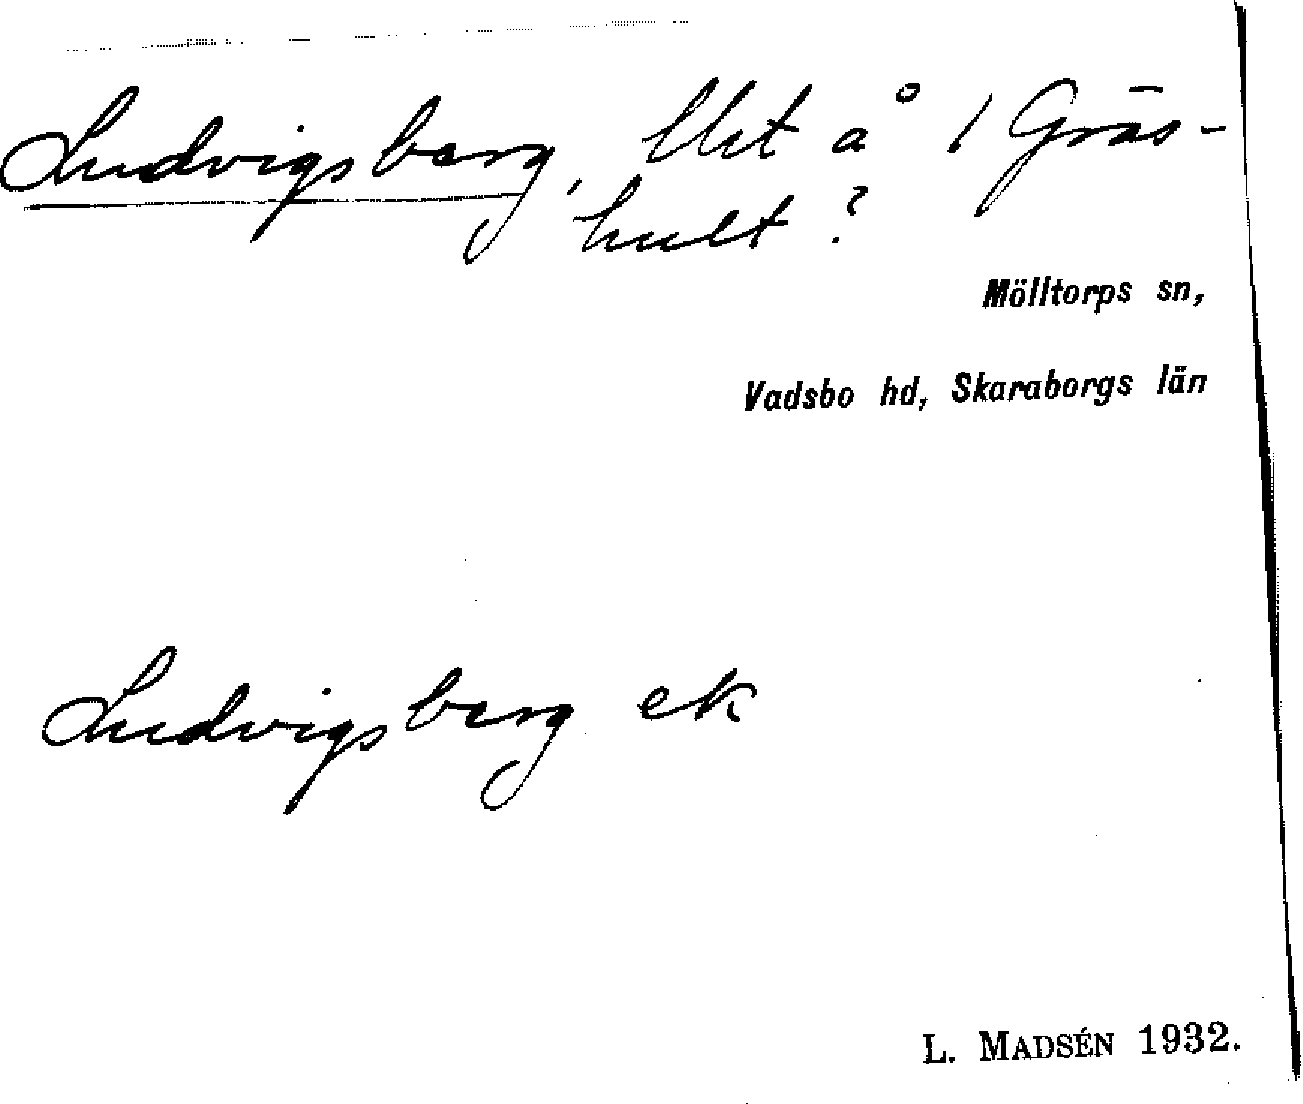 Ludvigsberg, lht å 1 Gräs-
hult?
Mölltorps sn,
Vadsbo hd, Skaraborgs län
Ludvigsberg ek
L. MADSÉN 1932.